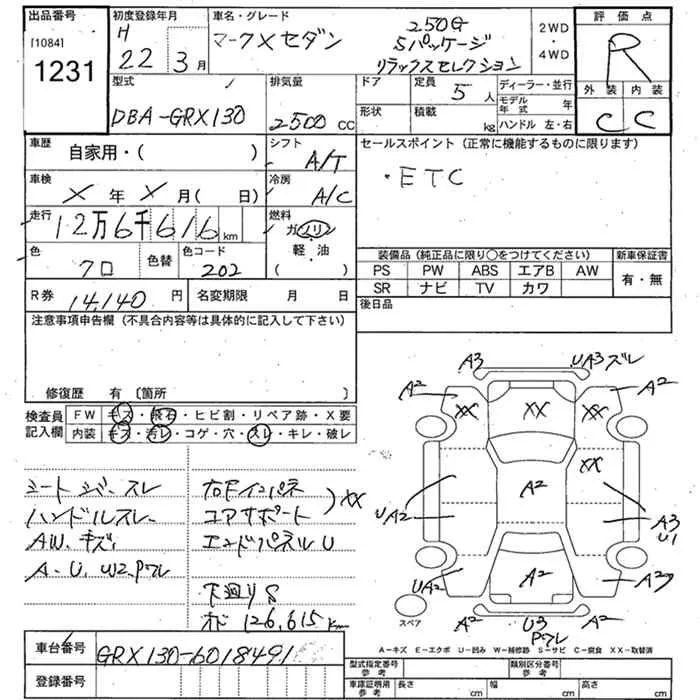 出品番号
[1084]
1231
初度登録年月
H 22 3月
車名・グレード
マークXセダン
250G
Sパッケージ
リラックスセレクション
2WD
・
4WD
評価点
R
外装 内装
C C
型式
DBA-GRX130
排気量
2500 CC
ドア
定員
5人
形状
積載
kg
ディーラー・並行
モデル年式 年
ハンドル 左・右
車歴
自家用・( )
シフト
A/T
セールスポイント (正常に機能するものに限ります)
・ETC
車検
X年X月( 日)
冷房
A/C
走行
12万6千616km
燃料
ガソリン
・
軽・油
( )
色
クロ
色替
色コード
202
装備品 (純正品に限り○をつけてください)
新車保証書
PS PW ABS エアB AW
有・無
SR ナビ TV カワ
R券 14,140円
名変期限 月 日
後日品
注意事項申告欄 (不具合内容等は具体的に記入して下さい)
修復歴 有 〔箇所 〕
検査員記入欄
FW キズ・飛石・ヒビ割・リペア跡・X要
内装 キズ・汚レ・コゲ・穴・スレ・キレ・破レ
シートシワ・スレ
ハンドルスレ
AW.キズ
A.U.W2.Pワレ
右Fインパネ
コアサポート
エンドパネルU
)XX
下廻りS
オド 126,615km
A3
UA3ズレ
A2
A2
XX
XX
XX
XX
UA2
A2
A3
U1
UA2
A2
A2
A2
U3
A2
Pワレ
スペア
A-キズ E-エクボ U-凹み W-補修跡 S-サビ C-腐食 XX-取替済
車台番号
GRX130-6018491
登録番号
型式指定番号 参考
類別区分番号 参考
車庫証明用 参考
長さ cm
幅 cm
高さ cm